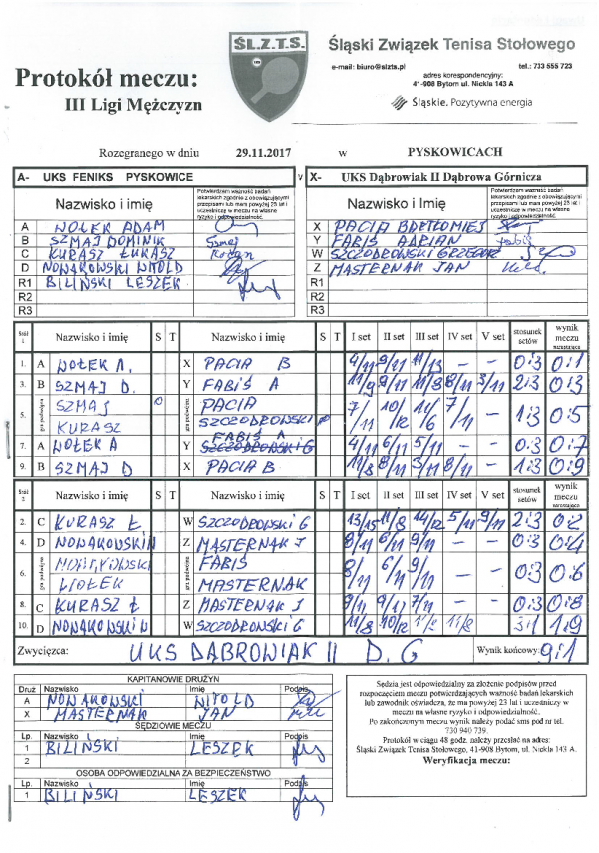 ŚL.Z.T.S.
Śląski Związek Tenisa Stołowego
e-mail: biuro@slzts.pl tel.: 733 555 723
adres korespondencyjny:
41-908 Bytom ul. Nickla 143 A
Śląskie. Pozytywna energia
Protokół meczu:
III Ligi Mężczyzn
Rozegranego w dniu 29.11.2017 w PYSKOWICACH
A- UKS FENIKS PYSKOWICE V X- UKS Dąbrowiak II Dąbrowa Górnicza
Nazwisko i imię Potwierdzam ważność badań lekarskich zgodnie z obowiązującymi przepisami lub mam powyżej 23 lat i uczestniczę w meczu na własne ryzyko i odpowiedzialność. Nazwisko i Imię Potwierdzam ważność badań lekarskich zgodnie z obowiązującymi przepisami lub mam powyżej 23 lat i uczestniczę w meczu na własne ryzyko i odpowiedzialność.
A WOŁEK ADAM X PACIA BARTŁOMIEJ
B SZMAJ DOMINIK Y FABIŚ ADRIAN
C KURASZ ŁUKASZ W SZCZODROWSKI GRZEGORZ
D NOWAKOWSKI WITOLD Z MASTERNAK JAN
R1 BILIŃSKI LESZEK R1
R2 R2
R3 R3
Stół 1 Nazwisko i imię S T Nazwisko i imię S T I set II set III set IV set V set stosunek setów wynik meczu narastająco
1. A WOŁEK A. X PACIA B 4/11 9/11 11/13 - - 0:3 0:1
3. B SZMAJ D. Y FABIŚ A 11/9 8/11 11/8 8/11 3/11 2:3 0:3
5. gra podwójna SZMAJ KURASZ gra podwójna PACIA SZCZODROWSKI 7/11 10/12 11/6 7/11 1:3 0:5
7. A WOŁEK A Y FABIŚ A SZCZODROWSKI G 4/11 6/11 5/11 - - 0:3 0:7
9. B SZMAJ D X PACIA B 11/8 8/11 3/11 8/11 - 1:3 0:9
Stół 2 Nazwisko i imię S T Nazwisko i imię S T I set II set III set IV set V set stosunek setów wynik meczu narastająco
2. C KURASZ Ł W SZCZODROWSKI G 13/15 11/8 14/12 5/11 9/11 2:3 0:2
4. D NOWAKOWSKI W Z MASTERNAK J 8/11 6/11 9/11 - - 0:3 0:4
6. gra podwójna WOŁEK gra podwójna FABIŚ MASTERNAK 8/11 6/11 9/11 - - 0:3 0:6
8. C KURASZ Ł Z MASTERNAK J 9/11 9/11 7/11 - - 0:3 0:8
10. D NOWAKOWSKI W W SZCZODROWSKI G 11/8 10/12 3:1 1:9
Zwycięzca: UKS DĄBROWIAK II D. G Wynik końcowy: 9:1
KAPITANOWIE DRUŻYN
Druż Nazwisko Imię Podpis
A NOWAKOWSKI WITOLD
X MASTERNAK JAN
SĘDZIOWIE MECZU
Lp. Nazwisko Imię Podpis
1 BILIŃSKI LESZEK
2
OSOBA ODPOWIEDZIALNA ZA BEZPIECZEŃSTWO
Lp. Nazwisko Imię Podpis
1 BILIŃSKI LESZEK
Sędzia jest odpowiedzialny za złożenie podpisów przed
rozpoczęciem meczu potwierdzających ważność badań lekarskich
lub zawodnik oświadcza, że ma powyżej 23 lat i uczestniczy w
meczu na własne ryzyko i odpowiedzialność.
Po zakończonym meczu wynik należy podać sms pod nr tel.
730 940 739.
Protokół w ciągu 48 godz. należy przesłać na adres:
Śląski Związek Tenisa Stołowego, 41-908 Bytom, ul. Nickla 143 A.
Weryfikacja meczu: